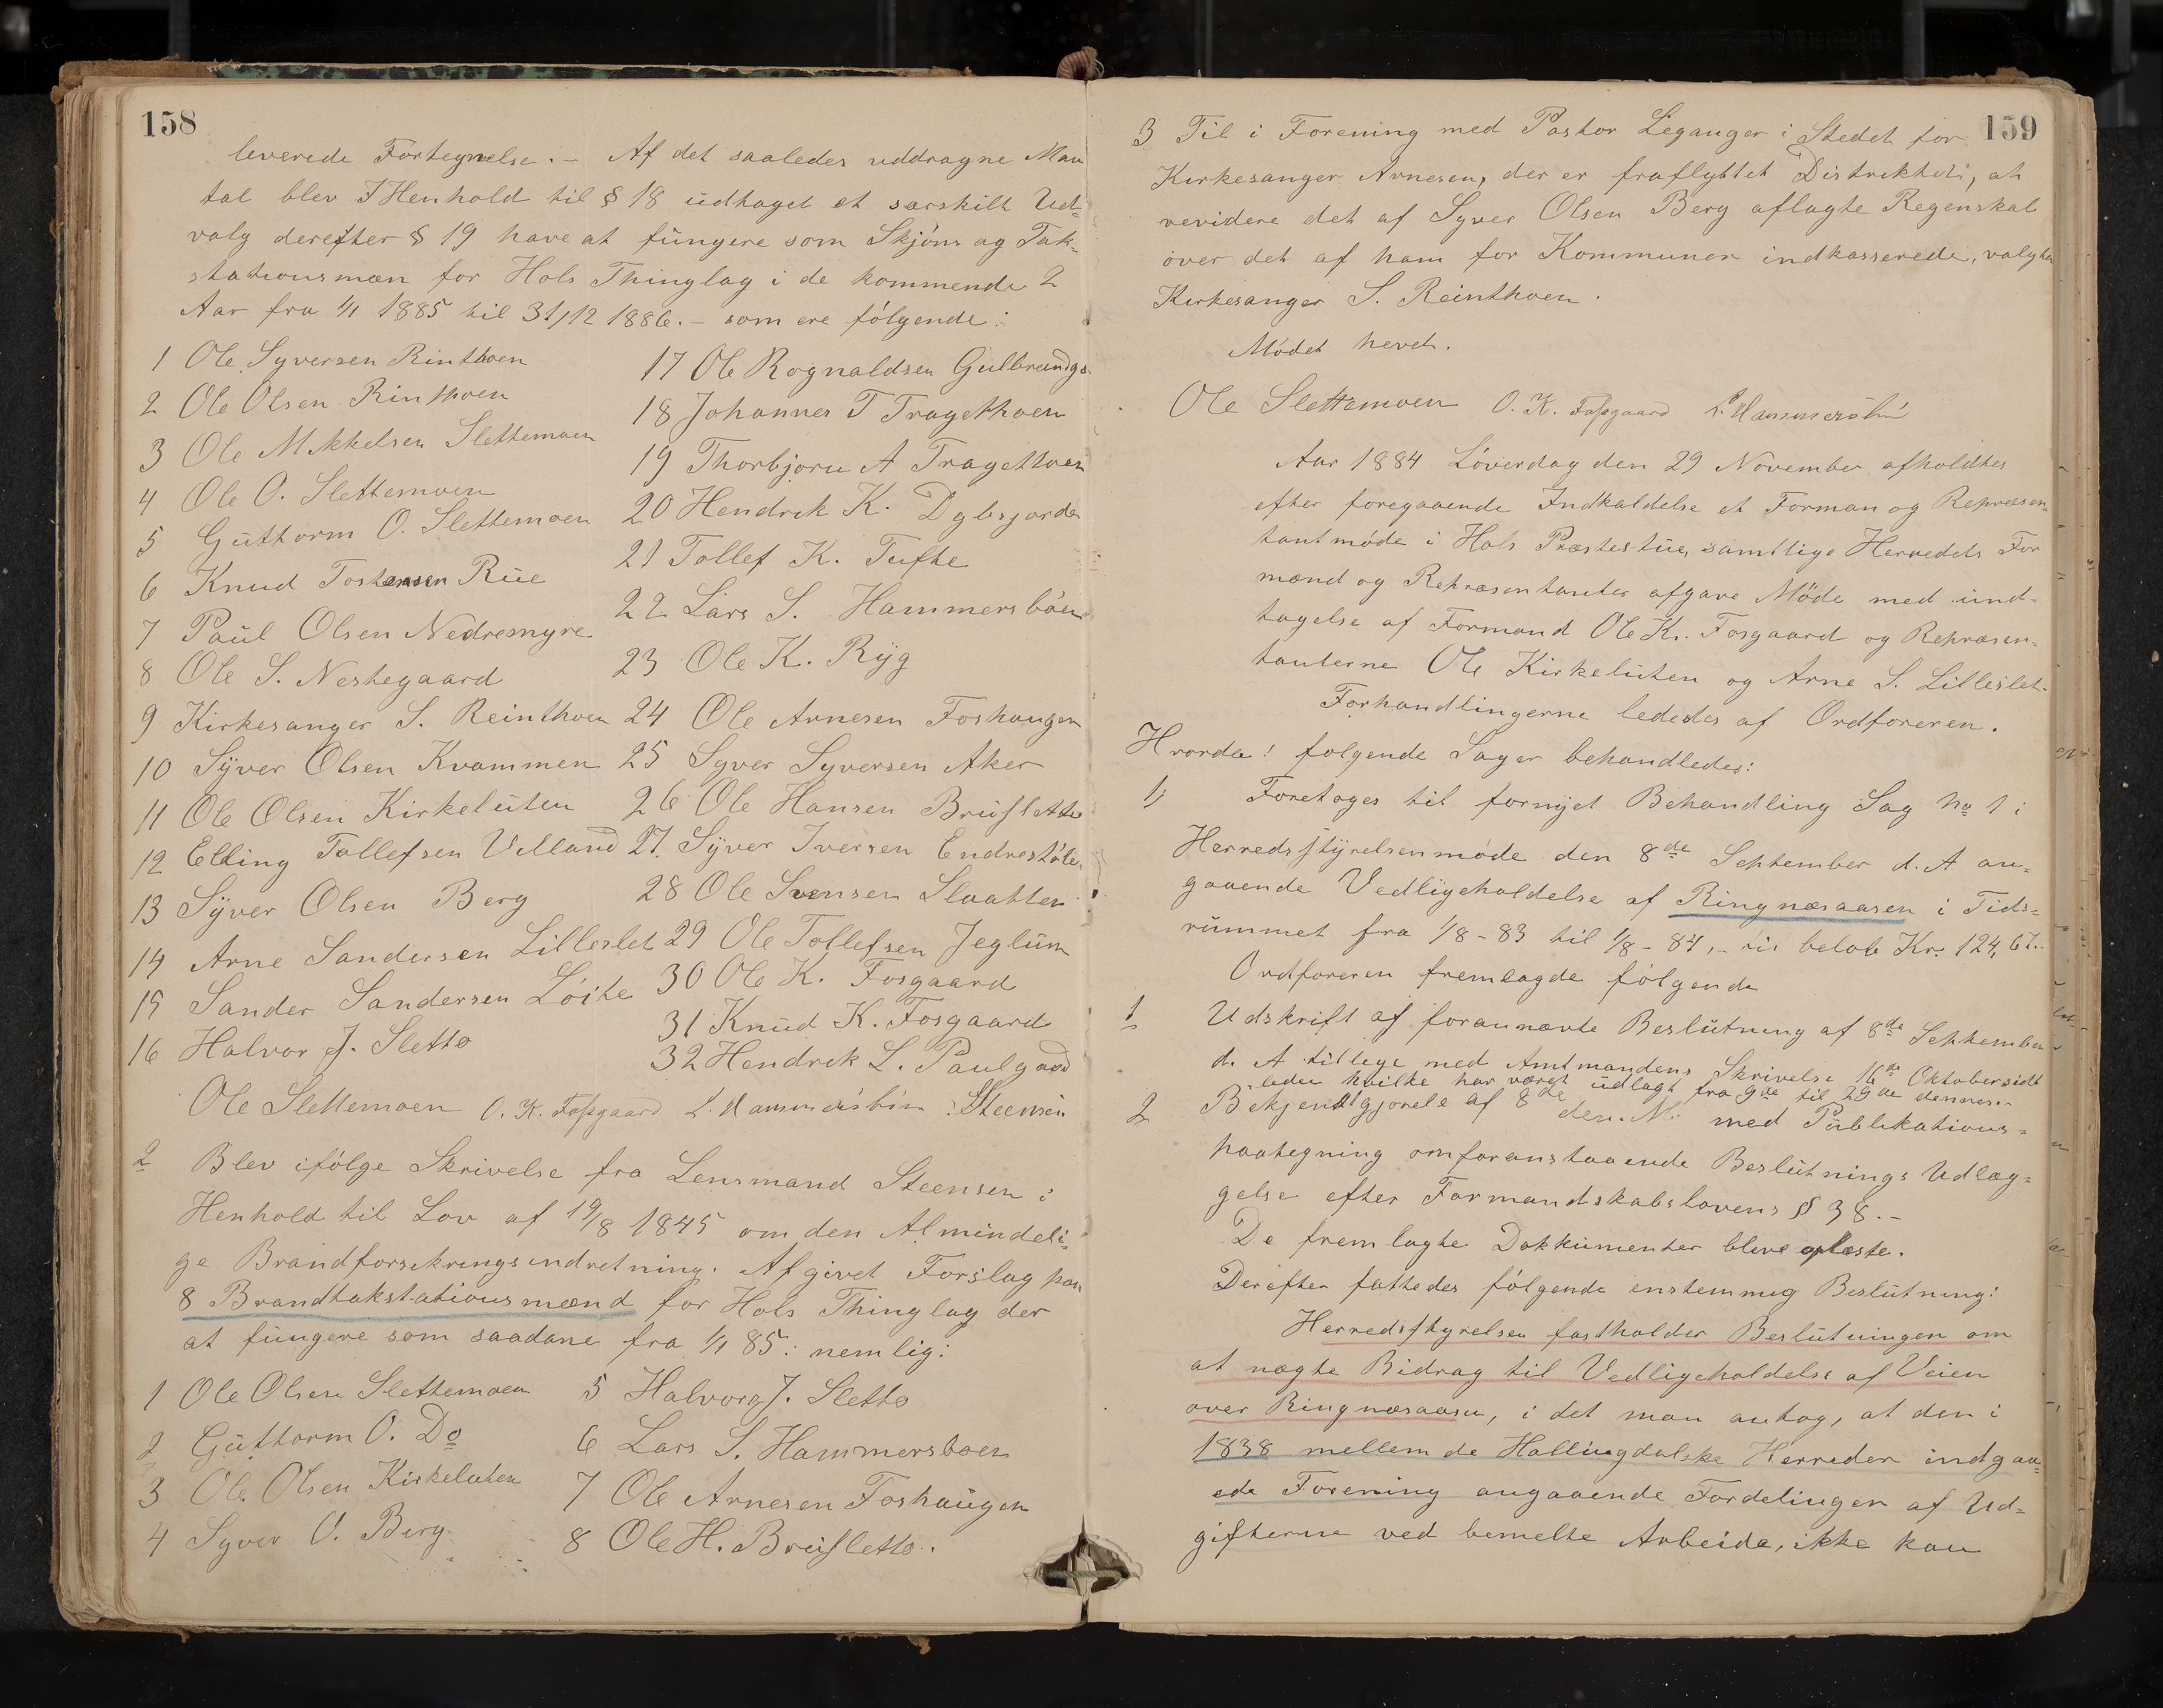 158
leverede Fortegnelse. – Af det saaledes uddragne Man
tal blev I Henhold til § 18 udtaget et særskilt Ud-
valg derefter § 19 have at fungere som Skjöns og Tak-
stationsmæn for Hols Thinglag i de kommende 2
Aar fra 1/1 1885 til 31/12 1886. – som ere følgende:
1 Ole Syversen Rinthoen
2 Ole Olsen Rinthoen
3 Ole Mikkelsen Slettemoen
4 Ole O. Slettemoen
5 Guttorm O. Slettemoen
6 Knud Tostensen Rue
7 Paul Olsen Nedremyre
8 Ole S. Nestegaard
9 Kirkesanger S. Reinthoen
10 Syver Olsen Kvammen
11 Ole Olsen Kirkeluten
12 Elling Tollefsen Villand
13 Syver Olsen Berg
14 Arne Sandersen Lilleslet
15 Sander Sandersen Löite
16 Halvor J. Sletto
17 Ole Rognaldsen Gulbrandsg.
18 Johannes T Tragethoen
19 Thorbjorn A Tragethoen
20 Hendrik K. Dglesjorde
21 Tollef K. Tufte
22 Lars S. Hammersböen
23 Ole K. Ryg
24 Ole Arnesen Foshaugen
25 Syver Syversen Aker
26 Ole Hansen Brusletto
27. Syver Iversen Endrestölen
28 Ole Svensen Slaatten
29 Ole Tollefsen Jeglum
30 Ole K. Fosgaard
31 Knud K. Fosgaard
32 Hendrik L. Paulgaard
Ole Slettemoen O. K. Fossgaard L. Hammersböen Steensen
2 Blev ifölge Skrivelse fra Lensmand Steensen i
Henhold til Lov af 19/8 1845 om den Almindeli-
ge Brandforsikringsindretning. Afgivet Forslag paa
8 Brandtakstationsmænd for Hols Thinglag der
at fungere som saadane fra 1/1 85: nemlig:
1 Ole Olsen Slettemoen
2 Guttorm O. Do
3 Ole Olsen Kirkeluten
4 Syver O. Berg
5 Halvor J. Sletto
6 Lars S. Hammersboen
7 Ole Arnesen Foshaugen
8 Ole H. Brusletto.
159
3 Til i Forening med Pastor Leganger i Stedet for
Kirkesanger Arnesen, der er fraflyttet Distriktet, at
revidere det af Syver Olsen Berg aflagte Regenskab
over det af ham for Kommunen indkasserede, valgtes
Kirkesanger S. Reinthoen.
Mödet hevet.
Ole Slettemoen O. K. Fossgaard L. Hammersböen
Aar 1884 Löverdag den 29 November afholdtes
efter foregaaende Indkaldelse et Forman og Repræsen-
tantmöde i Hols Præstestue, samtlige Herredets For
mænd og Repræsentanter afgave Möde med und-
tagelse af Formand Ole K. Fosgaard og Repræsen-
tanterne Ole Kirkeluten og Arne S. Lilleslet.
Forhandlingerne lededes af Ordføreren.
Hvorda! følgende Sager behandledes:
1) Foretoges til fornyet Behandling Sag No 1 i
Herredsstyrelsenmöde den 8de September d. A an-
gaaende Vedligeholdelse af Ringnæsaasen i Tids-
rummet fra 1/8 – 83 til 1/8 – 84, – belöb Kr. 124,67.
Ordføreren fremlagde følgende
1 Udskrift af forannævte Beslutning af 8de September
d. A tillige med Amtmandens Skrivelse 16de Oktober sidst
leden hvilke har været udlagt fra 9de til 29de dennes.
2 Bekjendtgjörele af 8de den. M. med Publikations-
paategning om foranstaaende Beslutnings Udlæg-
gelse efter Formandskabslovens § 38. –
De fremlagte Dokkumenter bleve oplæste.
Derefter fattedes følgende enstemmig Beslutning:
Herredsstyrelsen fastholder Beslutningen om
at nægte Bidrag til Vedligeholdelse af Veien
over Ringnæsaasen, i det man antog, at den i
1838 mellem de Hallingdalske Herreder indgaa-
ede Forening angaaende Fordelingen af Ud-
gifterne ved bemelte Arbeide, ikke kan